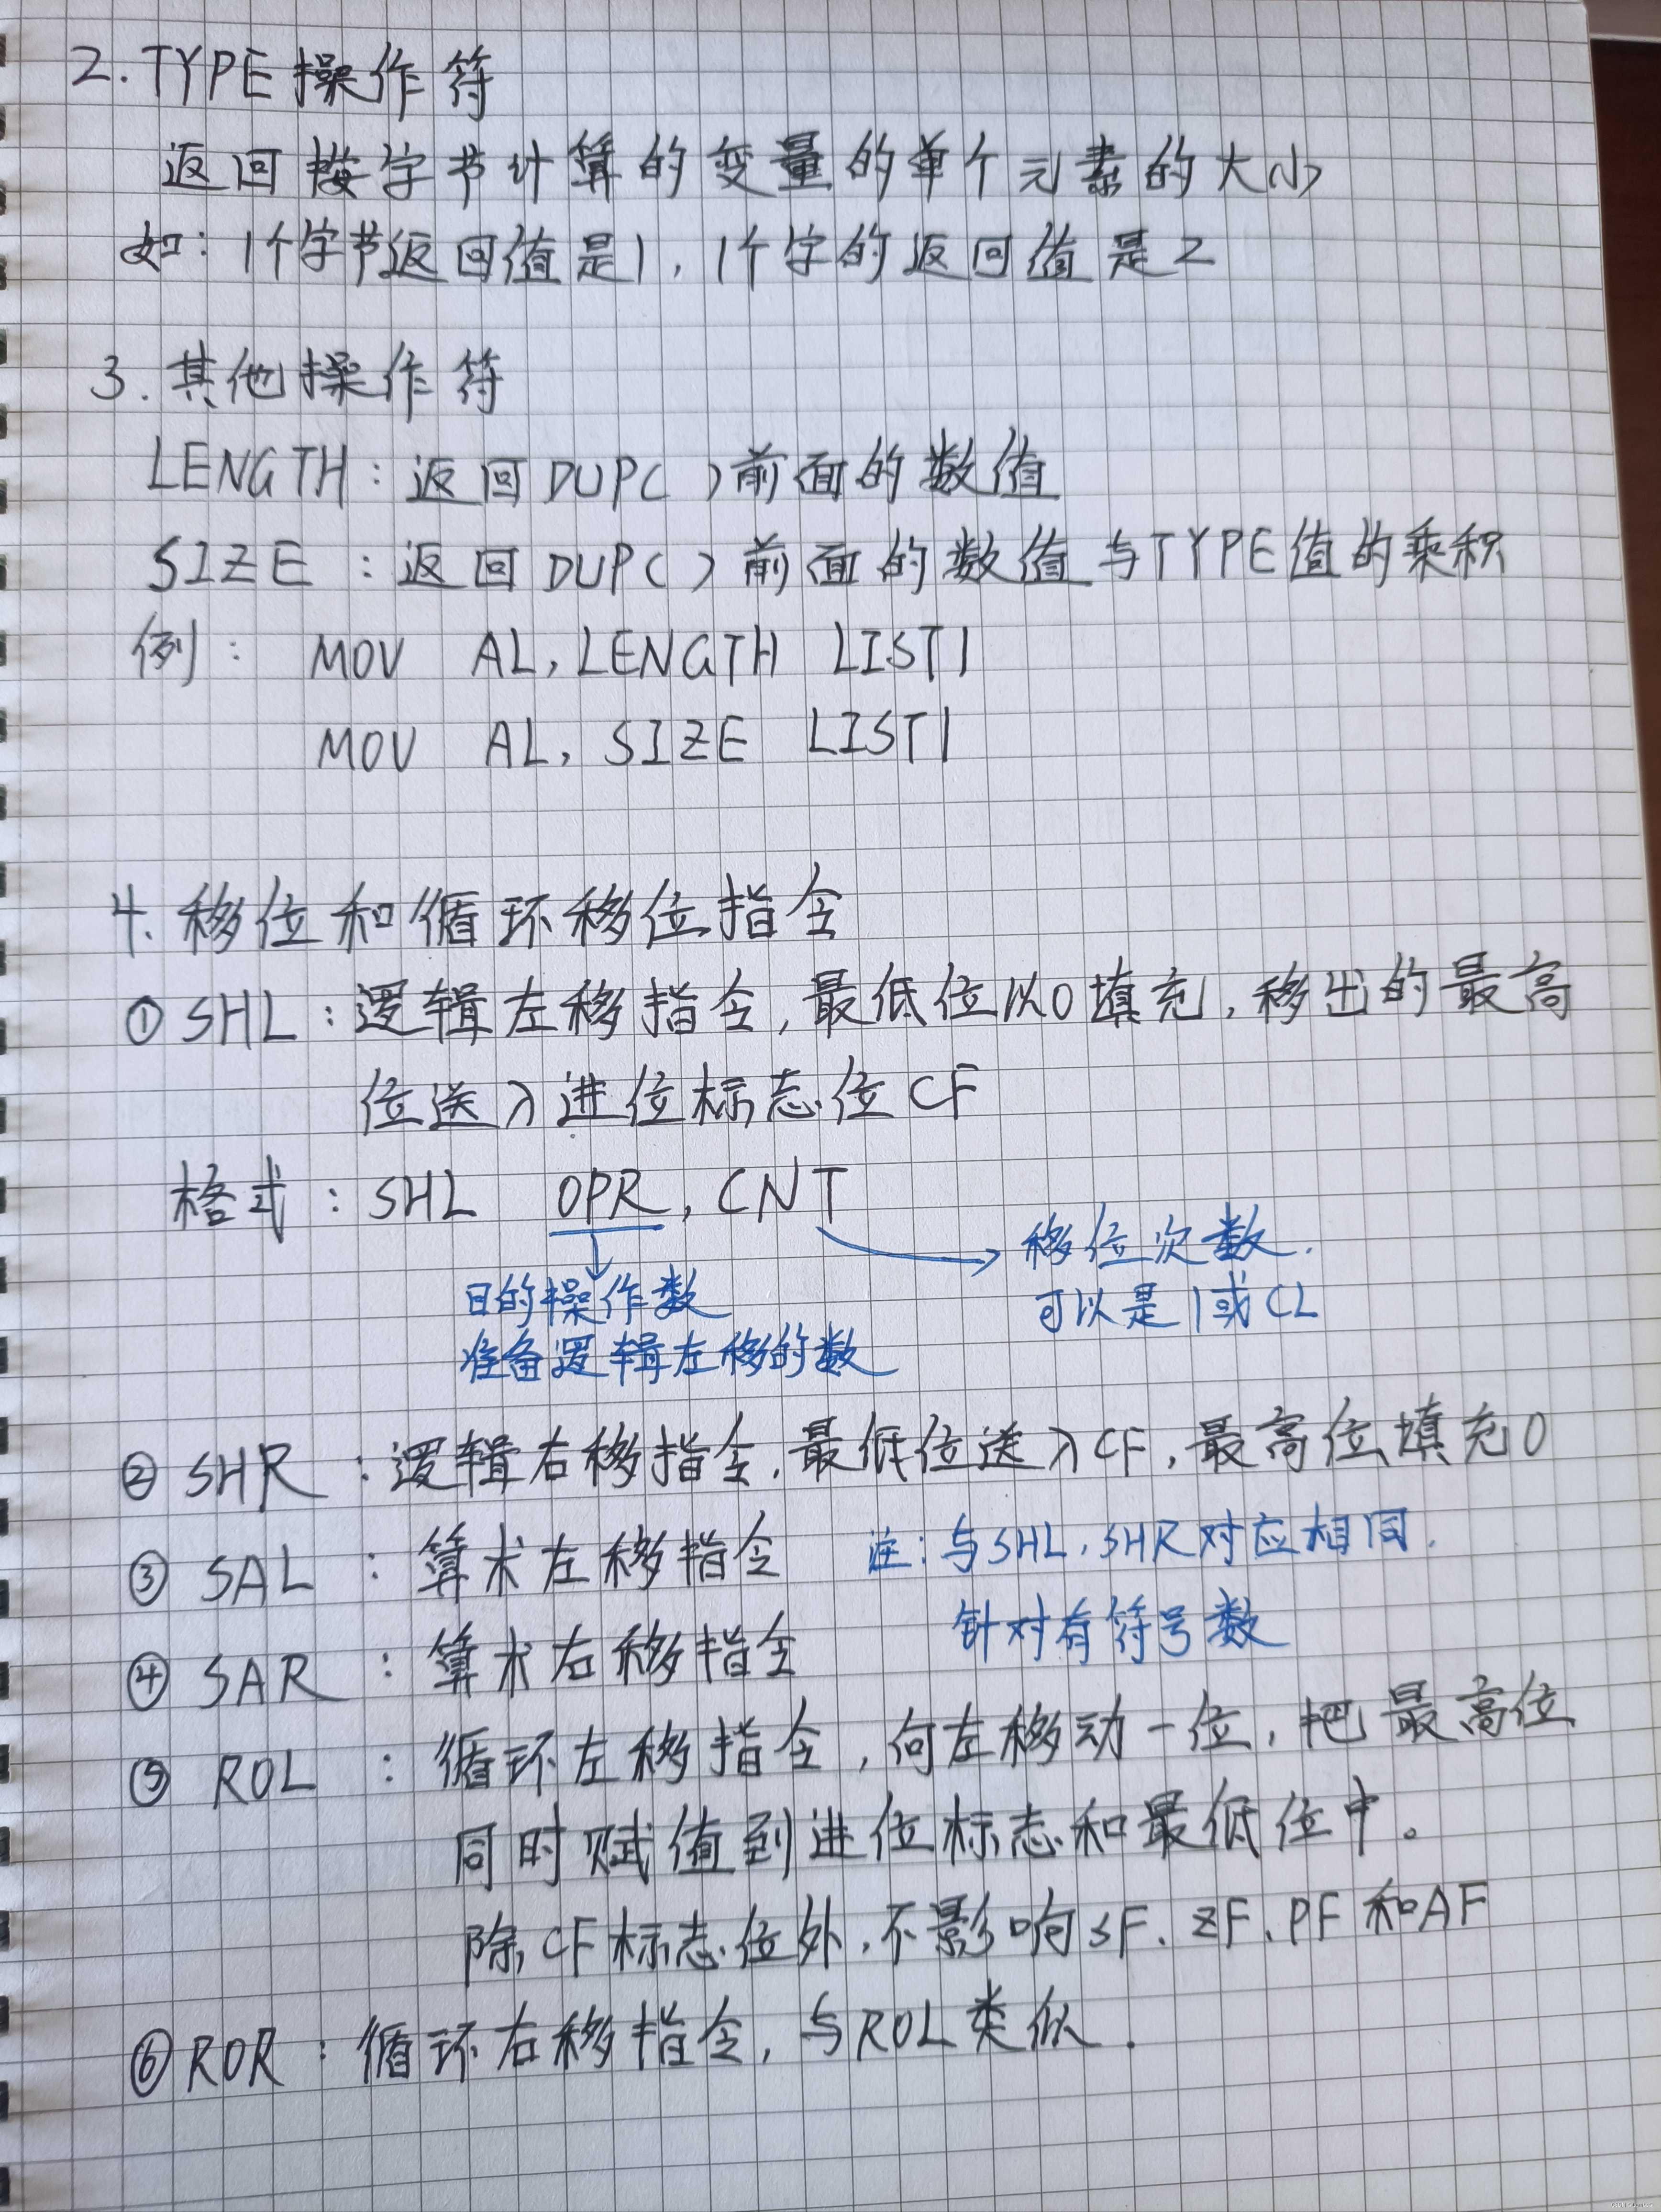 2.TYPE操作符
返回按字节计算的变量的单个元素的大小
如：1个字节返回值是1，1个字的返回值是2
3.其他操作符
LENGTH：返回DUP( )前面的数值
SIZE：返回DUP( )前面的数值与TYPE值的乘积
例： MOV AL, LENGTH LIST1
MOV AL, SIZE LIST1
4.移位和循环移位指令
①SHL：逻辑左移指令，最低位以0填充，移出的最高
位送入进位标志位CF
格式：SHL OPR, CNT
移位次数.
目的操作数
可以是1或CL
准备逻辑左移的数
②SHR：逻辑右移指令,最低位送入CF,最高位填充0
③SAL：算术左移指令 注：与SHL,SHR对应相同.
针对有符号数
④SAR：算术右移指令
⑤ROL：循环左移指令，向左移动一位，把最高位
同时赋值到进位标志和最低位中。
除CF标志位外,不影响SF、ZF、PF和AF
⑥ROR：循环右移指令，与ROL类似.